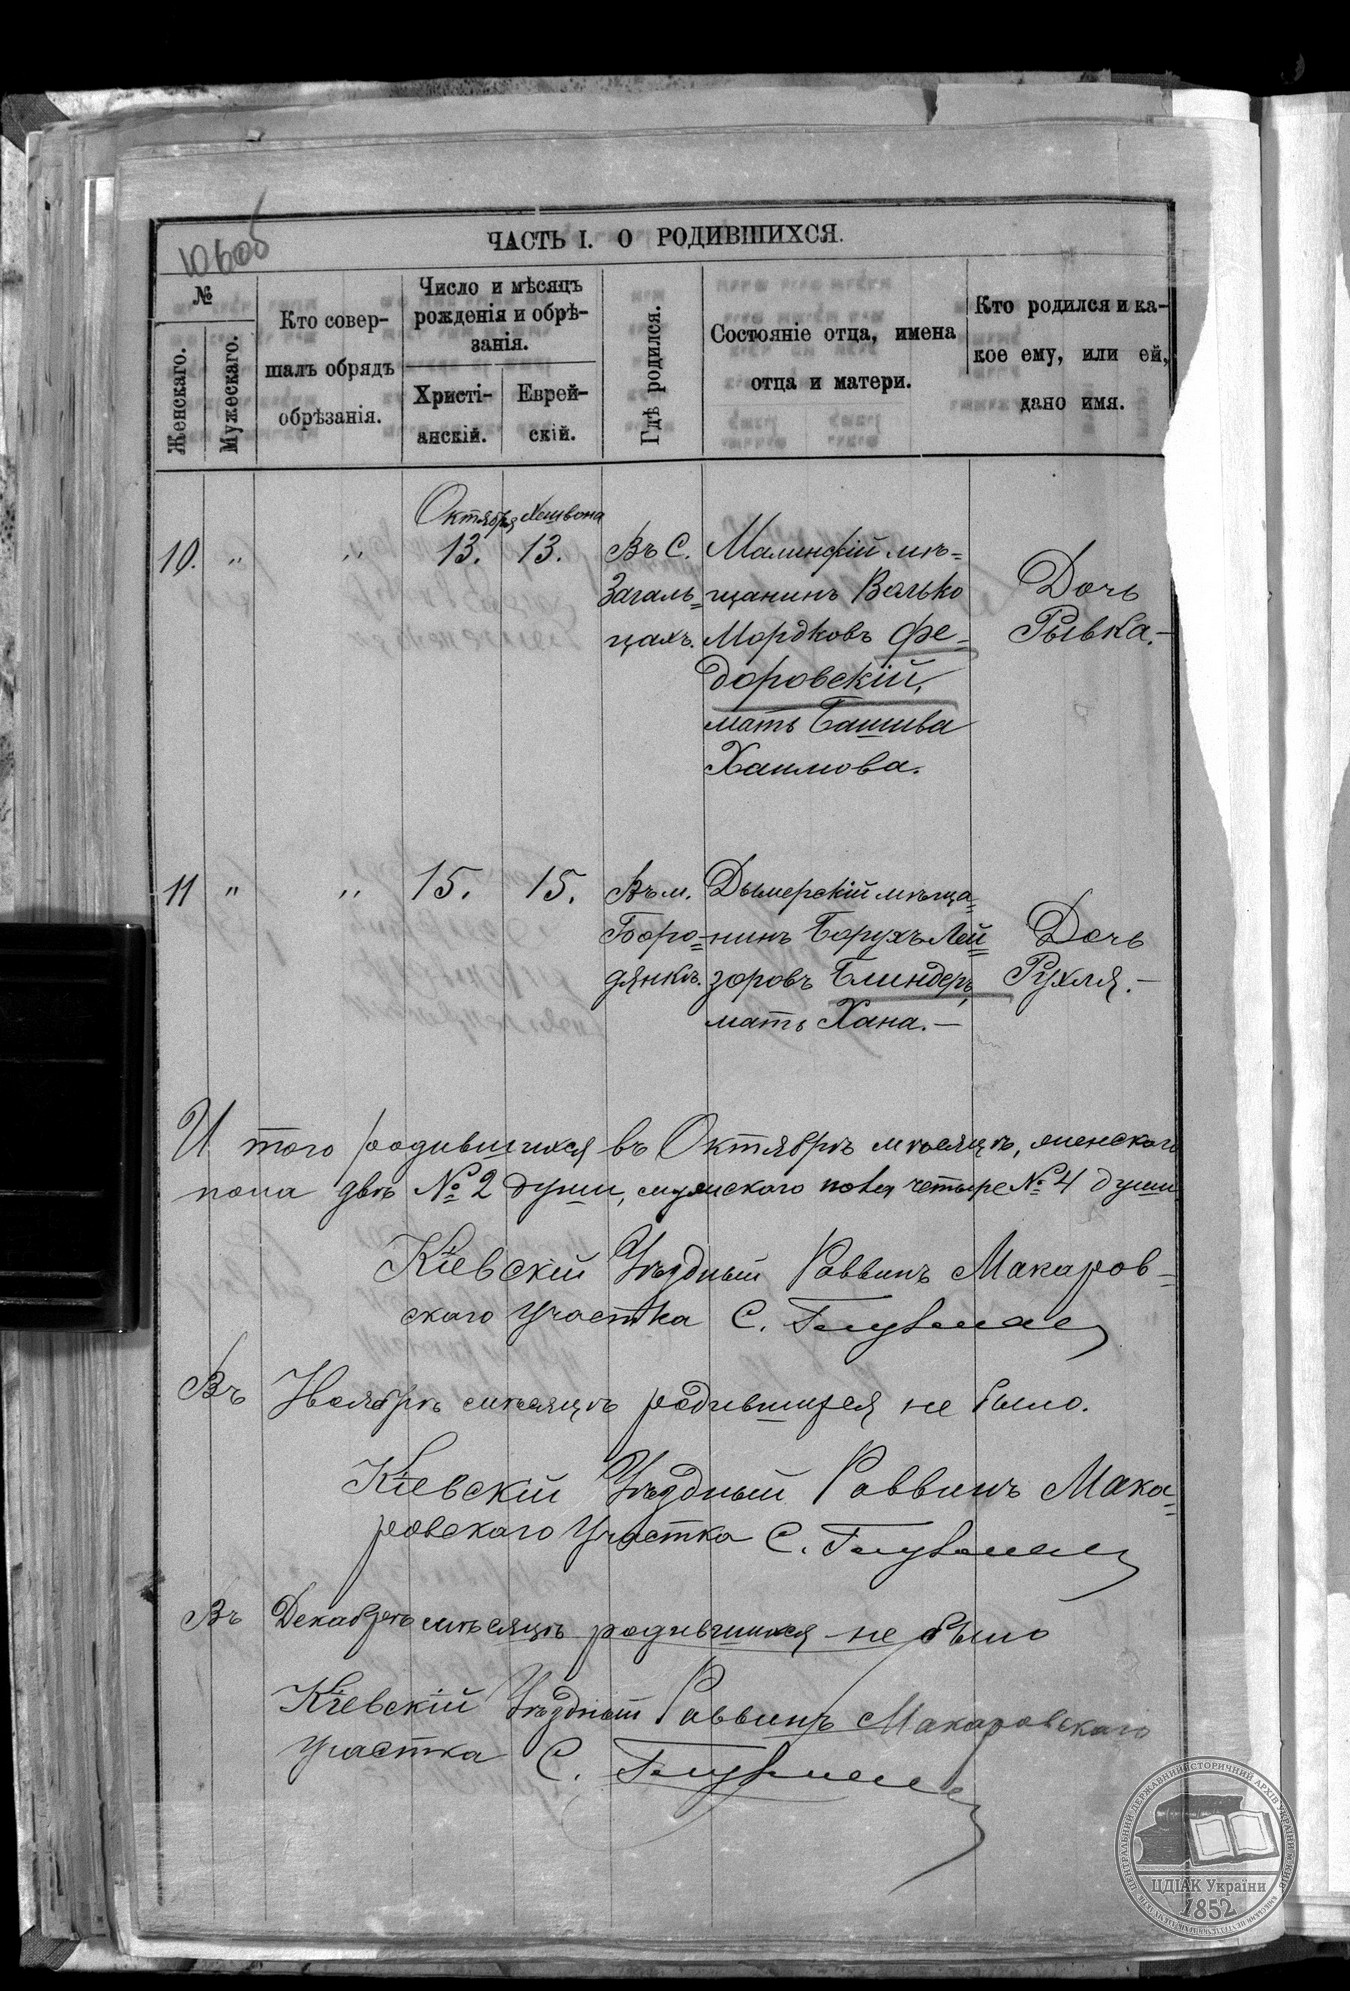 106об
ЧАСТЬ I. О РОДИВШИХСЯ.
№
Женскаго.
Мужескаго.
Кто совер-
шалъ обрядъ
обрѣзанія.
Число и мѣсяцъ
рожденія и обрѣ-
занія.
Христі-
анскій.
Еврей-
скій.
Гдѣ родился.
Состояніе отца, имена
отца и матери.
Кто родился и ка-
кое ему, или ей,
дано имя.
Октября Хешвона
10. " " 13. 13.
Въ С.
Загаль=
цахъ.
Малинскій мѣ=
щанинъ Волько
Мордковъ Фе=
доровскій,
мать Башива
Хаимова.
Дочь
Рывка.-
11 " " 15. 15.
Въ м.
Боро=
дянкѣ.
Дымерскій мѣща=
нинъ Борухъ Лей=
зоровъ Блиндеръ,
мать Хана.-
Дочь
Рухля.-
И того родившихся въ Октябрѣ мѣсяцѣ, женского
пола двѣ № 2 души, мужского пола четыре № 4 души
Кіевскій Уѣздный Раввинъ Макаров=
ского участка С.
Въ Ноябрѣ мѣсяцѣ родившихся не было.
Кіевскій Уѣздный Раввинъ Мака=
ровского участка С.
Въ Декабрѣ мѣсяцѣ родившихся не было
Кіевскій Уѣздный Раввинъ Макаровскаго
участка С.
ЦЕНТРАЛЬНИЙ ДЕРЖАВНИЙ ІСТОРИЧНИЙ АРХІВ УКРАЇНИ, М.КИЇВ
ЦДІАК України
1852